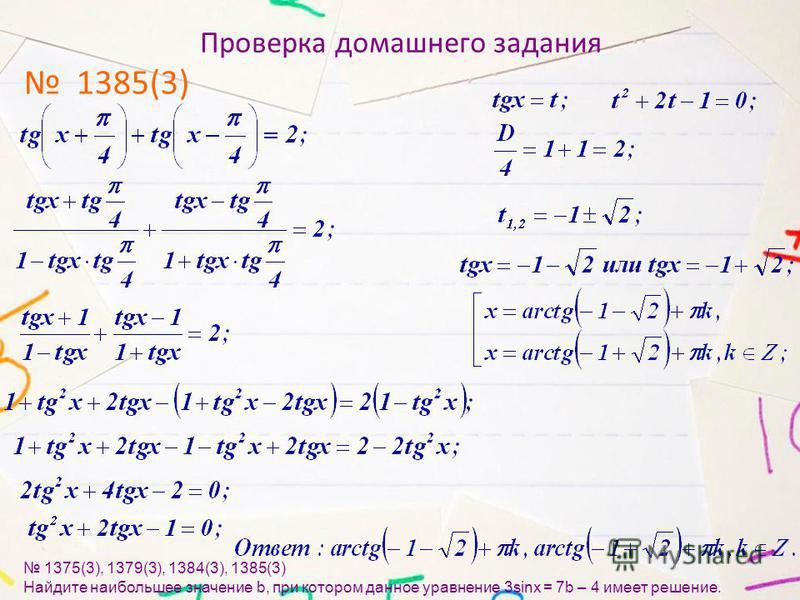 Проверка домашнего задания
№ 1385(3)
tg(x + π/4) + tg(x − π/4) = 2;
(tgx + tg π/4)/(1 − tgx · tg π/4) + (tgx − tg π/4)/(1 + tgx · tg π/4) = 2;
(tgx + 1)/(1 − tgx) + (tgx − 1)/(1 + tgx) = 2;
1 + tg²x + 2tgx − (1 + tg²x − 2tgx) = 2(1 − tg²x);
1 + tg²x + 2tgx − 1 − tg²x + 2tgx = 2 − 2tg²x;
2tg²x + 4tgx − 2 = 0;
tg²x + 2tgx − 1 = 0;
tgx = t; t² + 2t − 1 = 0;
D/4 = 1 + 1 = 2;
t1,2 = −1 ± √2;
tgx = −1 − √2 или tgx = −1 + √2;
[ x = arctg(−1 − √2) + πk,
x = arctg(−1 + √2) + πk, k ∈ Z;
Ответ : arctg(−1 − √2) + πk, arctg(−1 + √2) + πk, k ∈ Z.
MyShared
№ 1375(3), 1379(3), 1384(3), 1385(3)
Найдите наибольшее значение b, при котором данное уравнение 3sinx = 7b – 4 имеет решение.